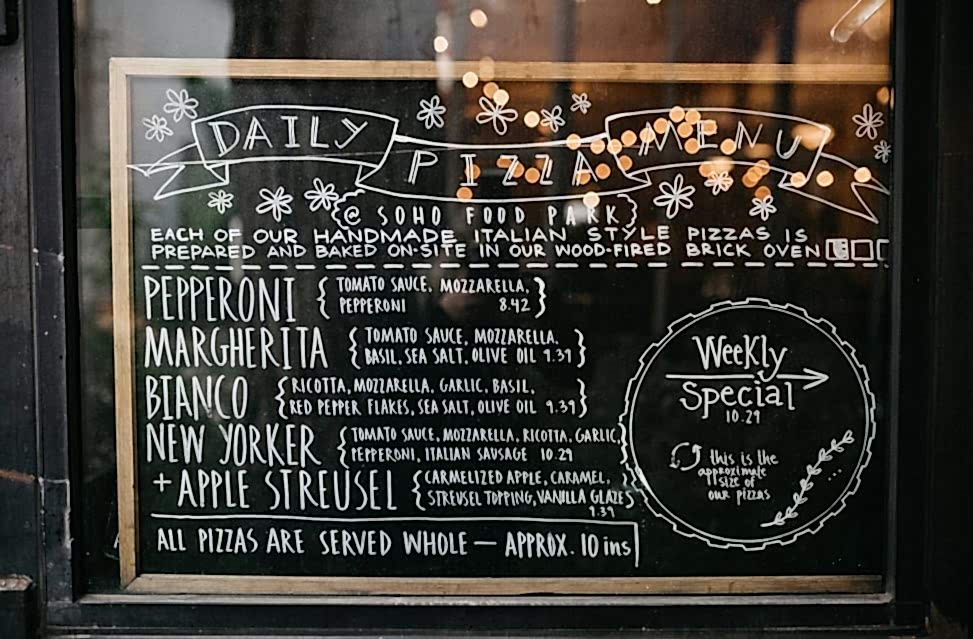 DAILY PIZZA MENU
@ SOHO FOOD PARK
EACH OF OUR HANDMADE ITALIAN STYLE PIZZAS IS
PREPARED AND BAKED ON-SITE IN OUR WOOD-FIRED BRICK OVEN
PEPPERONI { TOMATO SAUCE, MOZZARELLA,
PEPPERONI 8.42 }
MARGHERITA { TOMATO SAUCE, MOZZARELLA,
BASIL, SEA SALT, OLIVE OIL 9.39 }
BIANCO { RICOTTA, MOZZARELLA, GARLIC, BASIL,
RED PEPPER FLAKES, SEA SALT, OLIVE OIL 9.39 }
NEW YORKER { TOMATO SAUCE, MOZZARELLA, RICOTTA, GARLIC,
PEPPERONI, ITALIAN SAUSAGE 10.29
+ APPLE STREUSEL { CARMELIZED APPLE, CARAMEL,
STREUSEL TOPPING, VANILLA GLAZE }
9.39
ALL PIZZAS ARE SERVED WHOLE — APPROX. 10 ins
Weekly
Special
10.29
this is the
approximate
size of
our pizzas